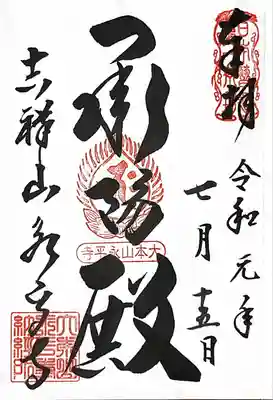 奉拝
令和元年
七月十五日
承陽殿
大本山永平寺
吉祥山永平寺